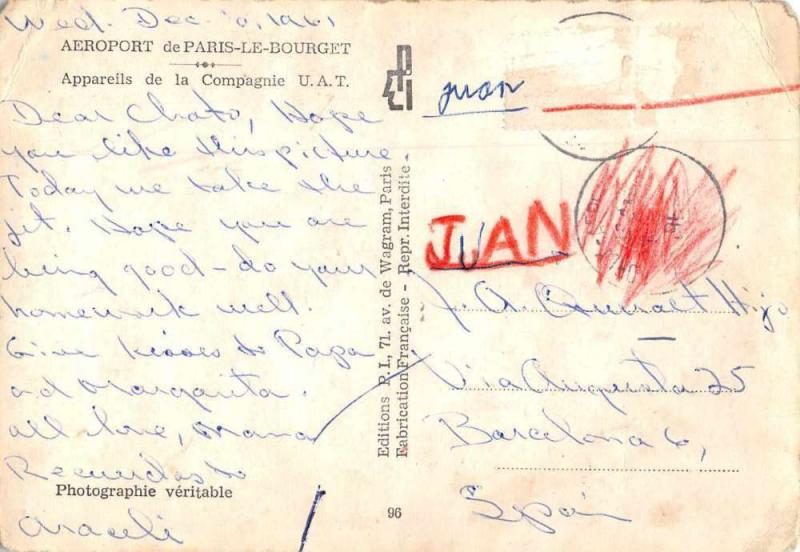 Wed. Dec. 1961
AEROPORT de PARIS-LE-BOURGET
Appareils de la Compagnie U.A.T.
Dear Chato, Hope
you like this picture.
Today we take the
jet. Hope you are
being good - do your
homework well.
Give kisses to Papa
and Margarita.
All love, Mama
Recuerdos to
Araceli
Photographie véritable
Editions P.I., 71. av. de Wagram, Paris
Fabrication Française - Repr. Interdite
96
Juan
JUAN
J. A. Hijo
Via Augusta 25
Barcelona 6,
Spain